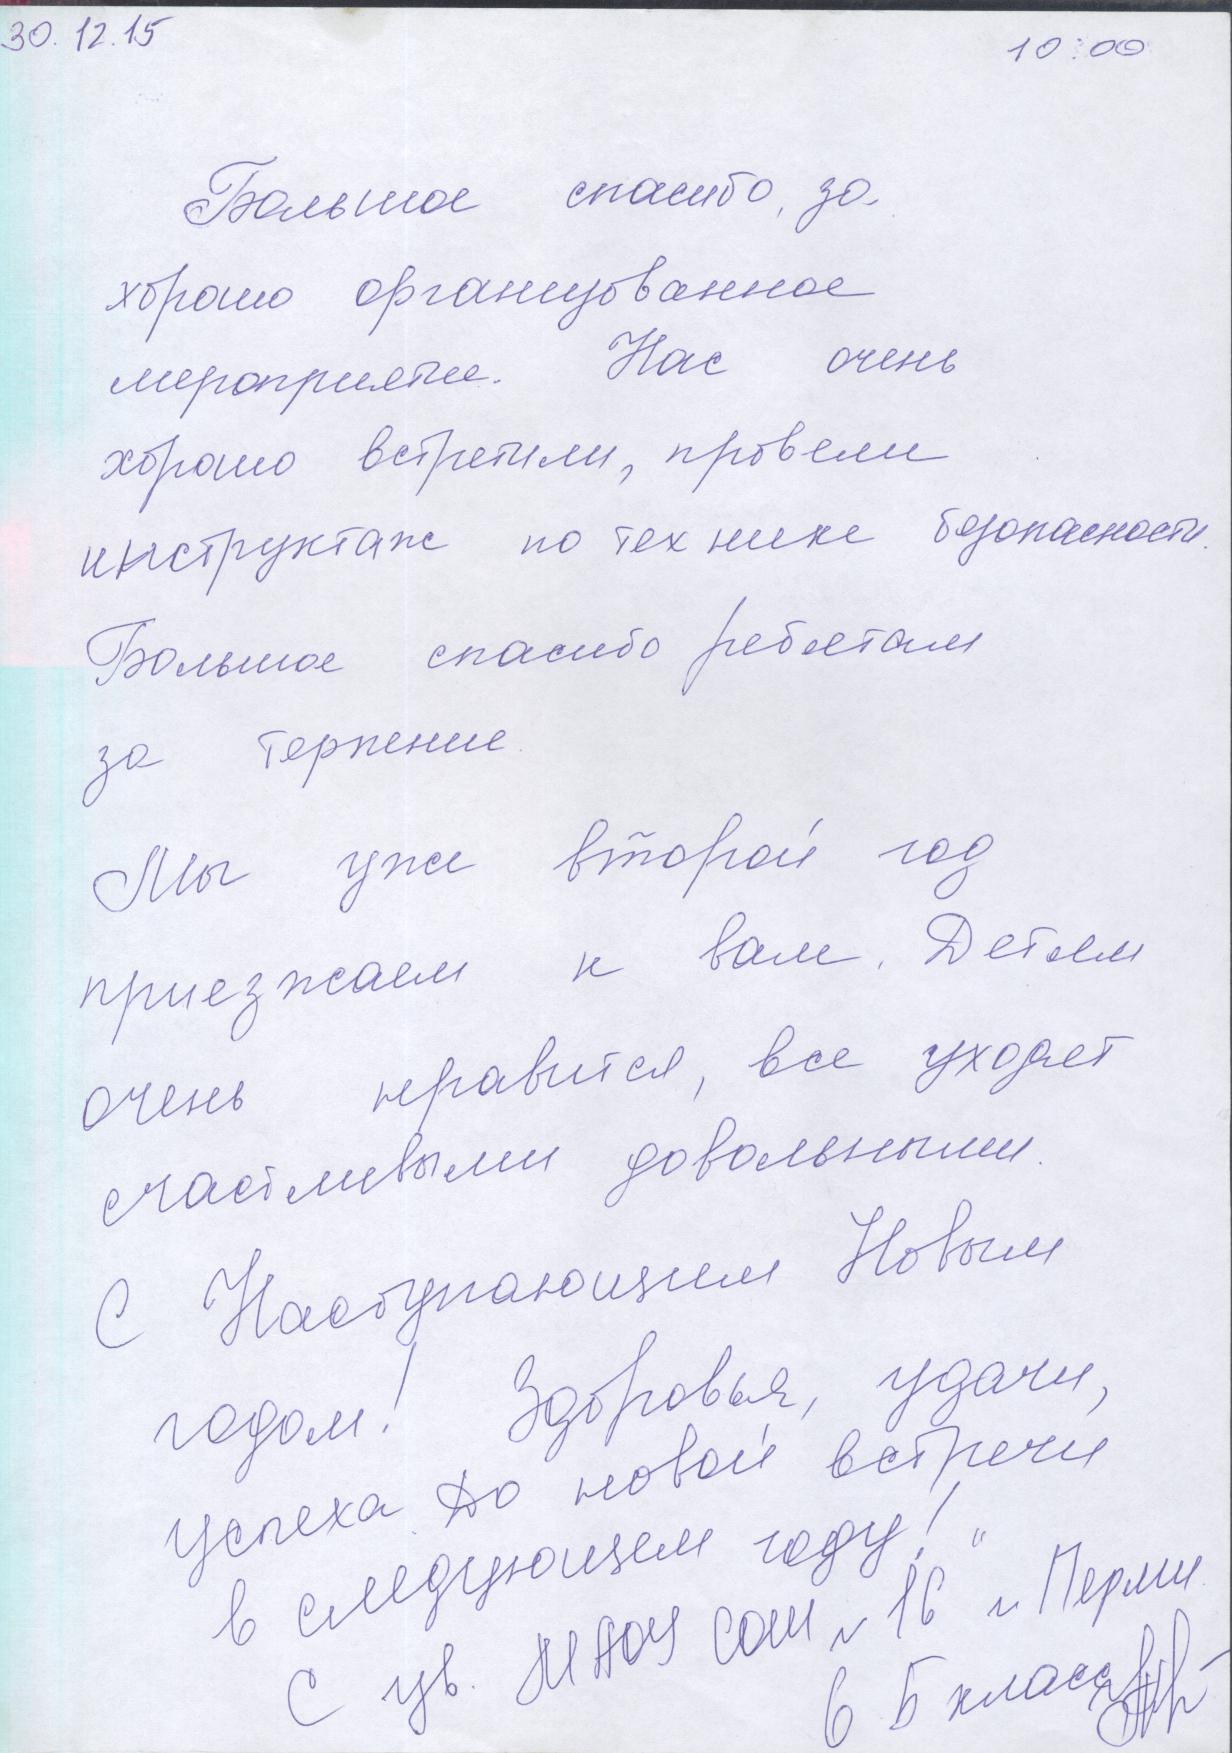 30.12.15 10:00
Большое спасибо, за
хорошо организованное
мероприятие. Нас очень
хорошо встретили, провели
инструктаж по технике безопасности.
Большое спасибо ребятам
за терпение.
Мы уже второй год
приезжаем к вам. Детям
очень нравится, все уходят
счастливыми довольными.
С Наступающим Новым
годом! Здоровья, удачи,
успеха. До новой встречи
в следующем году!
С ув. МАОУ СОШ "16" г. Перми
6 Б класс